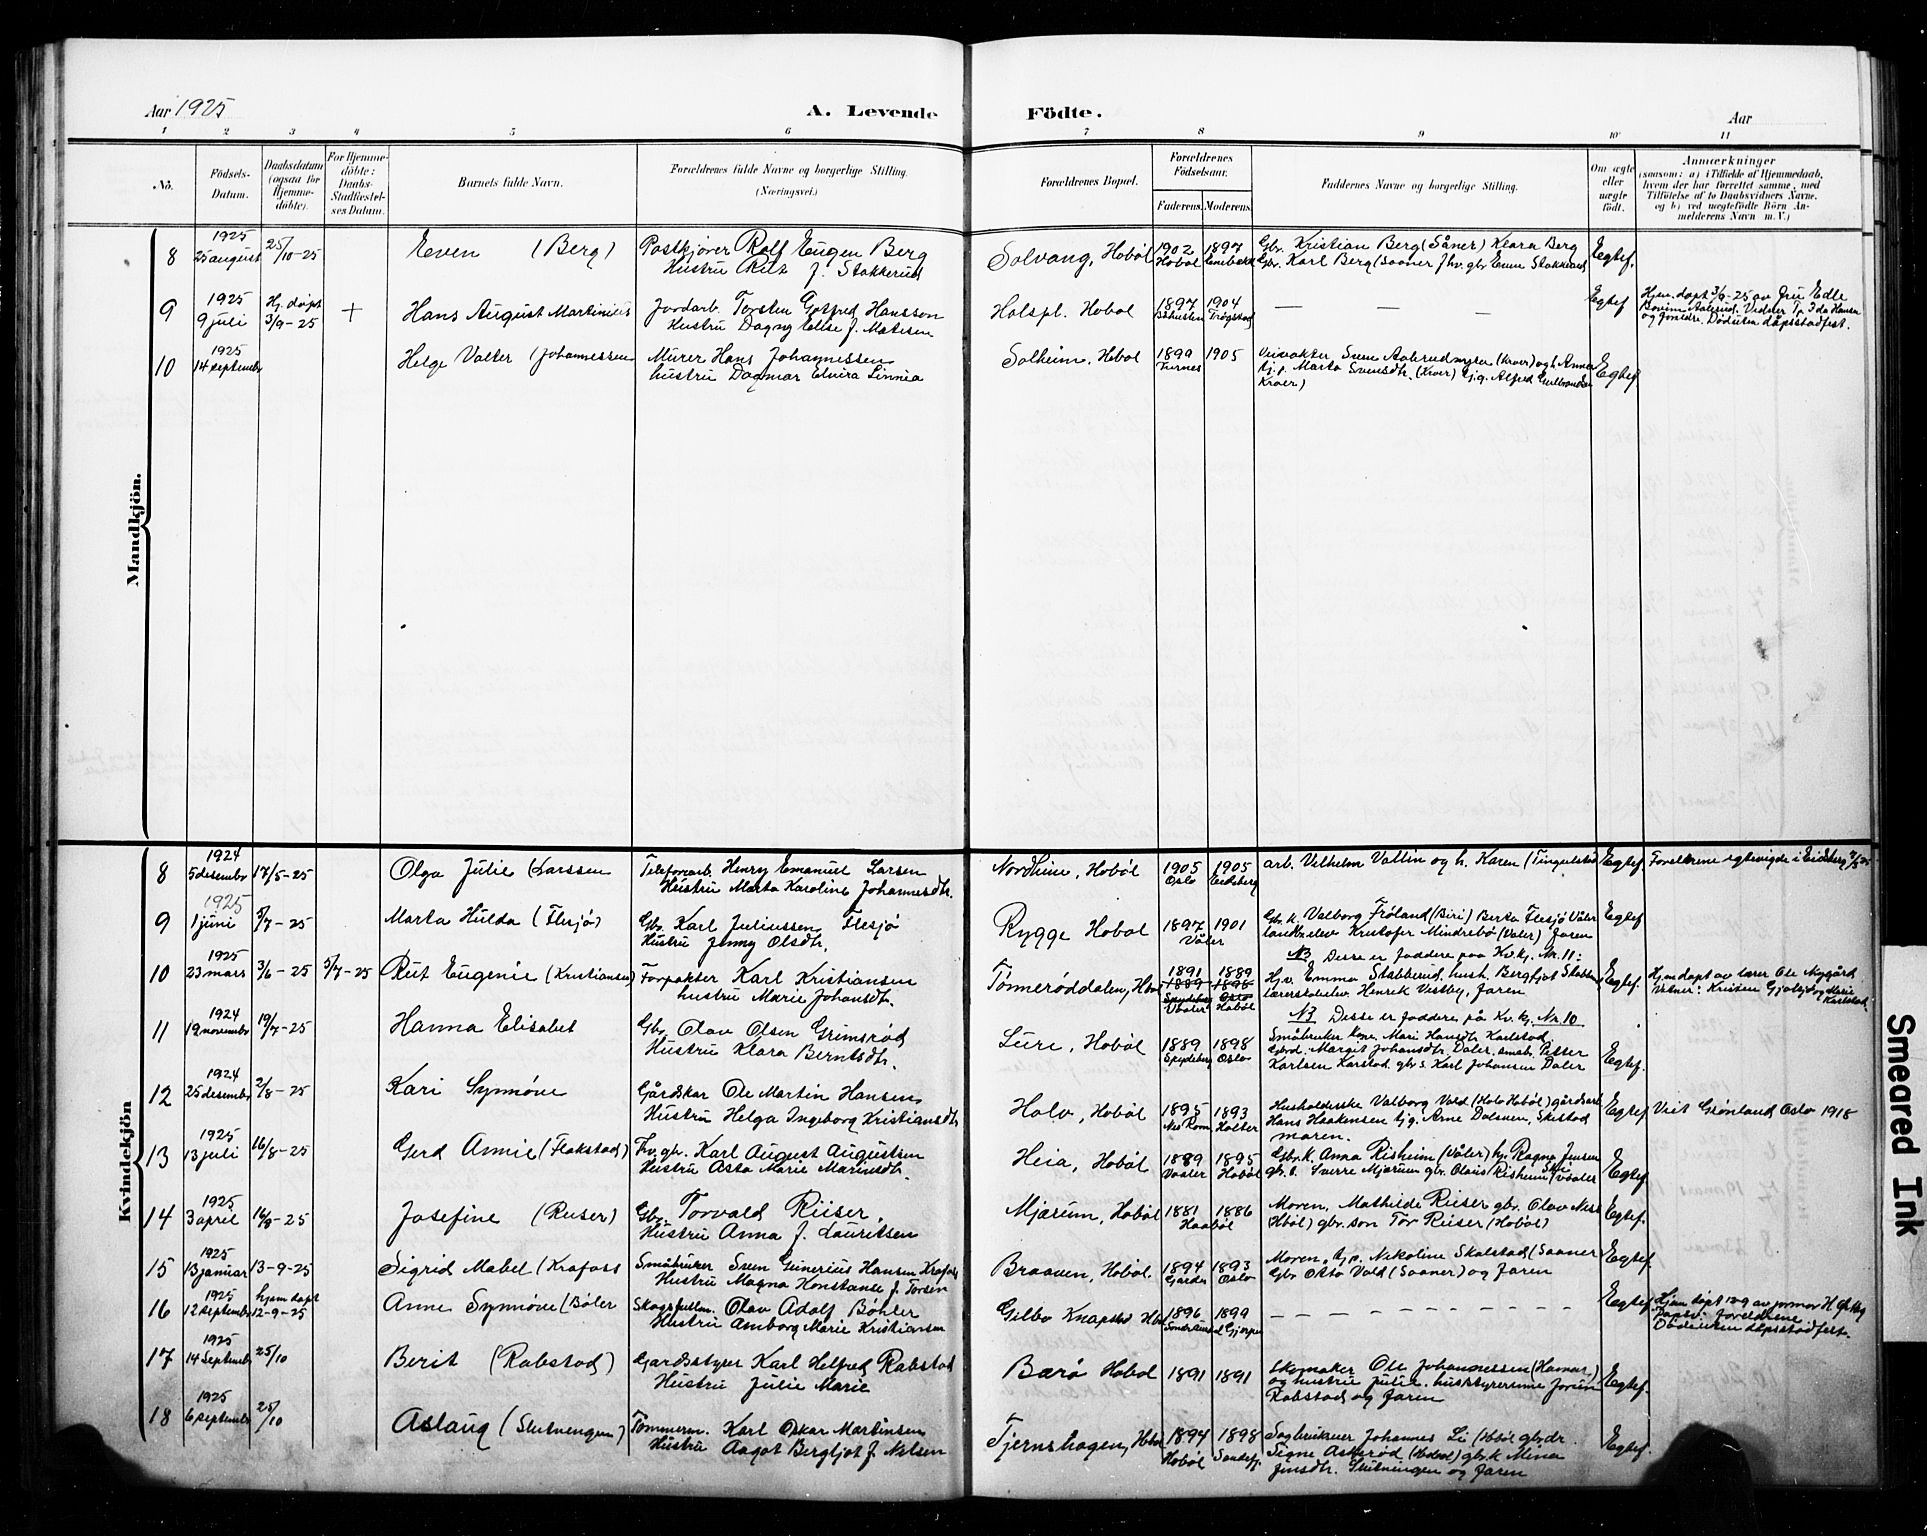 Aar 1925
A. Levende
Födte.
Aar
1 2 3 4 5 6 7 8 9 10 11
No.
Födsels-Datum.
Daabsdatum (ogsaa for Hjemme-döbte).
For Hjemme-döbte: Daabs-Stadfæstel-ses Datum.
Barnets fulde Navn.
Forældrenes fulde Navne og borgerlige Stilling. (Næringsvei.)
Forældrenes Bopæl.
Forældrenes Födselsaar.
Faderens. Moderens.
Faddernes Navne og borgerlige Stilling.
Om ægte eller uægte födt.
Anmærkninger
(saasom: a) i Tilfælde af Hjemmedaab, hvem der har forrettet samme, med Tilföielse af to Daabsvidners Navne, og b) ved uægtefödte Börn An-melderens Navn m. V.)
Mandkjön.
8 1925 25 august 25/10-25 Even (Berg) Postkjører Rolf Eugen Berg
Hustru Rut f. Stokkerud
Solvang, Hobøl 1902 Hobøl 1897 Enebakk
Gbr. Kristian Berg (Såner) Klara Berg
Gbr. Karl Berg (Saaner) hv. gbr Stokkerud
Egtef.
9 1925 9 juli Hj. døpt 3/9-25 + Hans August Martinius Jordarb. Torsten Gotfred Hansson
Hustru Dagny Elise f. Matisen
Holspl. Hobøl 1897 1904 Trøgstad — — —
Egtef
Hjem. døpt 3/9-25 av fru Edle
Ida Hansen
10 1925 14 september Helge Valter (Johannessen Murer Hans Johannessen
hustru Dagmar Elvira Linnea
Solheim, Hobøl 1899 1905
Veivokter Svend (Kroer) og h. Anna
tj.p. Marta Svensdtr. (Kroer) tj.g. Alfred Gulbrandsen
Kroer)
Egtef
Kvindekjön
8 1924 5 desember 17/5-25 Olga Julie (Larssen Telefonarb. Henry Emanuel Larsen
Hustru Marta Karoline Johannesdtr.
Nordheim, Hobøl 1905 Oslo 1905 Eidsberg
arb. Vilhelm Vallin og h. Karen
Egtef. Foreldrene egtevigde i Eidsberg
9 1925 1 juni 5/7-25 Marta Hulda (Flesjø) Gbr. Karl Juliussen Flesjø
Hustru Jenny Olsdtr.
Rygge Hobøl 1897 1901 Våler
Gbr.k. Valborg Frøland (Biri) Berta Flesjø Våler
Kristofer Mindrebø (Våler) Faren
Egtef
10 1925 23 mars 3/6-25 5/7-25 Rut Eugenie (Kristiansen) Forpakter Karl Kristiansen
hustru Marie Johansdtr.
Tønnerøddalen, Hobøl 1891 1889
1889 1898
Spydeberg Oslo
Vaaler Hobøl
NB Desse er faddere paa Kv.kj. Nr. 11:
Hjv. Emma Stabberud, hush. Bergljot
Henrik Vestby, Faren
Egtef. Hjem døpt av lærer Ole Nygård
Vitner: Kristen og Marie
Karlstad
11 1924 19 november 19/7-25 Hanna Elisabet Gbr. Olav Olsen Grimsrød
Hustru Klara Berntsdtr.
Lure, Hobøl 1889 Spydeberg 1898 Oslo
NB Desse er faddere på Kv.kj. Nr. 10
Småbruker kone Mari Hansdtr Karlstad
Margit Johansdtr. Daler, småb. Petter
Karlsen Karlstad gbr s. Karl Johansen Daler
Egtef.
12 1924 25 desember 2/8-25 Kari Synnøve Gårdskar Ole Martin Hansen
Hustru Helga Ingeborg Kristiansdtr
Holv, Hobøl 1895 1893 Holter
Husholderske Valborg Vold (Hobøl) gårdsarb
Hans Haakensen tj.g. Arne Dalsveen, Skistad
moren.
Egtef Viet Grønland Oslo 1918
13 1925 13 juli 16/8-25 Gerd Annie (Flakstad) Fv. gbr. Karl August Augustsen
Hustru Asta Marie Marinsdtr.
Heia, Hobøl 1889 Vaaler 1895 Hobøl
Gbr.k. Anna Risheim (Våler) hj. Ragna Jensen
Sverre Mjærum gbr. Olaus Risheim (Vaaler
Egtef.
14 1925 3 april 16/8-25 Josefine (Ruser) Gbr. Torvald Rüser,
Hustru Anna f. Lauritsen
Mjærum, Hobøl 1881 1886 Haabøl
Moren, Mathilde Rüser gbr. Olav Ness
(Hbøl) gbr. søn Tor Rüser (Hobøl)
Egtef.
15 1925 13 januar 13-9-25 Sigrid Mabel (Krafoss Småbruker Sven Gunerius Hansen Krafoss
Hustru Magna Konstanse f. Torsen
Braaten, Hobøl. 1894 Garder 1893 Oslo
Moren, tj.p. Nikoline Skolstad (Saaner
Gbr Otto Vold (Saaner) og Faren
Egtef.
16 1925 12 september hjem døpt 12-9-25 Anne Synnøve (Bøler Skogsfullm. Olav Adolf Böhler
Hustru Amborg Marie Kristiansen
Gilbo Knapstad Hbøl 1896 1899 Gjerpen — — —
Egtef. Hjem døpt 12-9 av jormor H.
Foreldrene
17 1925 14 september 25/10 Berit (Rabstad) Gardsstyrer Karl Helfred Rabstad
Hustru Julie Marie
Bærø Hobøl 1891 1891
Skomaker Ole Johannessen (Hamar)
og hustru Julie. husstyrerinne Jorun
Rabstad og Faren
Egtef.
18 1925 6 september 25/10 Aslaug (Slutnengen) Tømmerm. Karl Oskar Martinsen
Hustru Aagot Bergljot f. Nilsen
Tjernshagen, Hobøl 1894 Hobøl 1898 Sandefj
Sagbruksarb Johannes Li (Hbøl gbrdr.
Signe Askerød (Hobøl) gbr.k Mina
Jensdtr. Slutningen og Faren
Egtef.
Smeared Ink